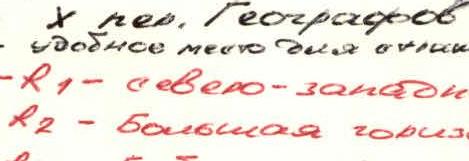 X пер. Географов
- удобное место для
- R1 - северо-запад
R2 - Большая гориз